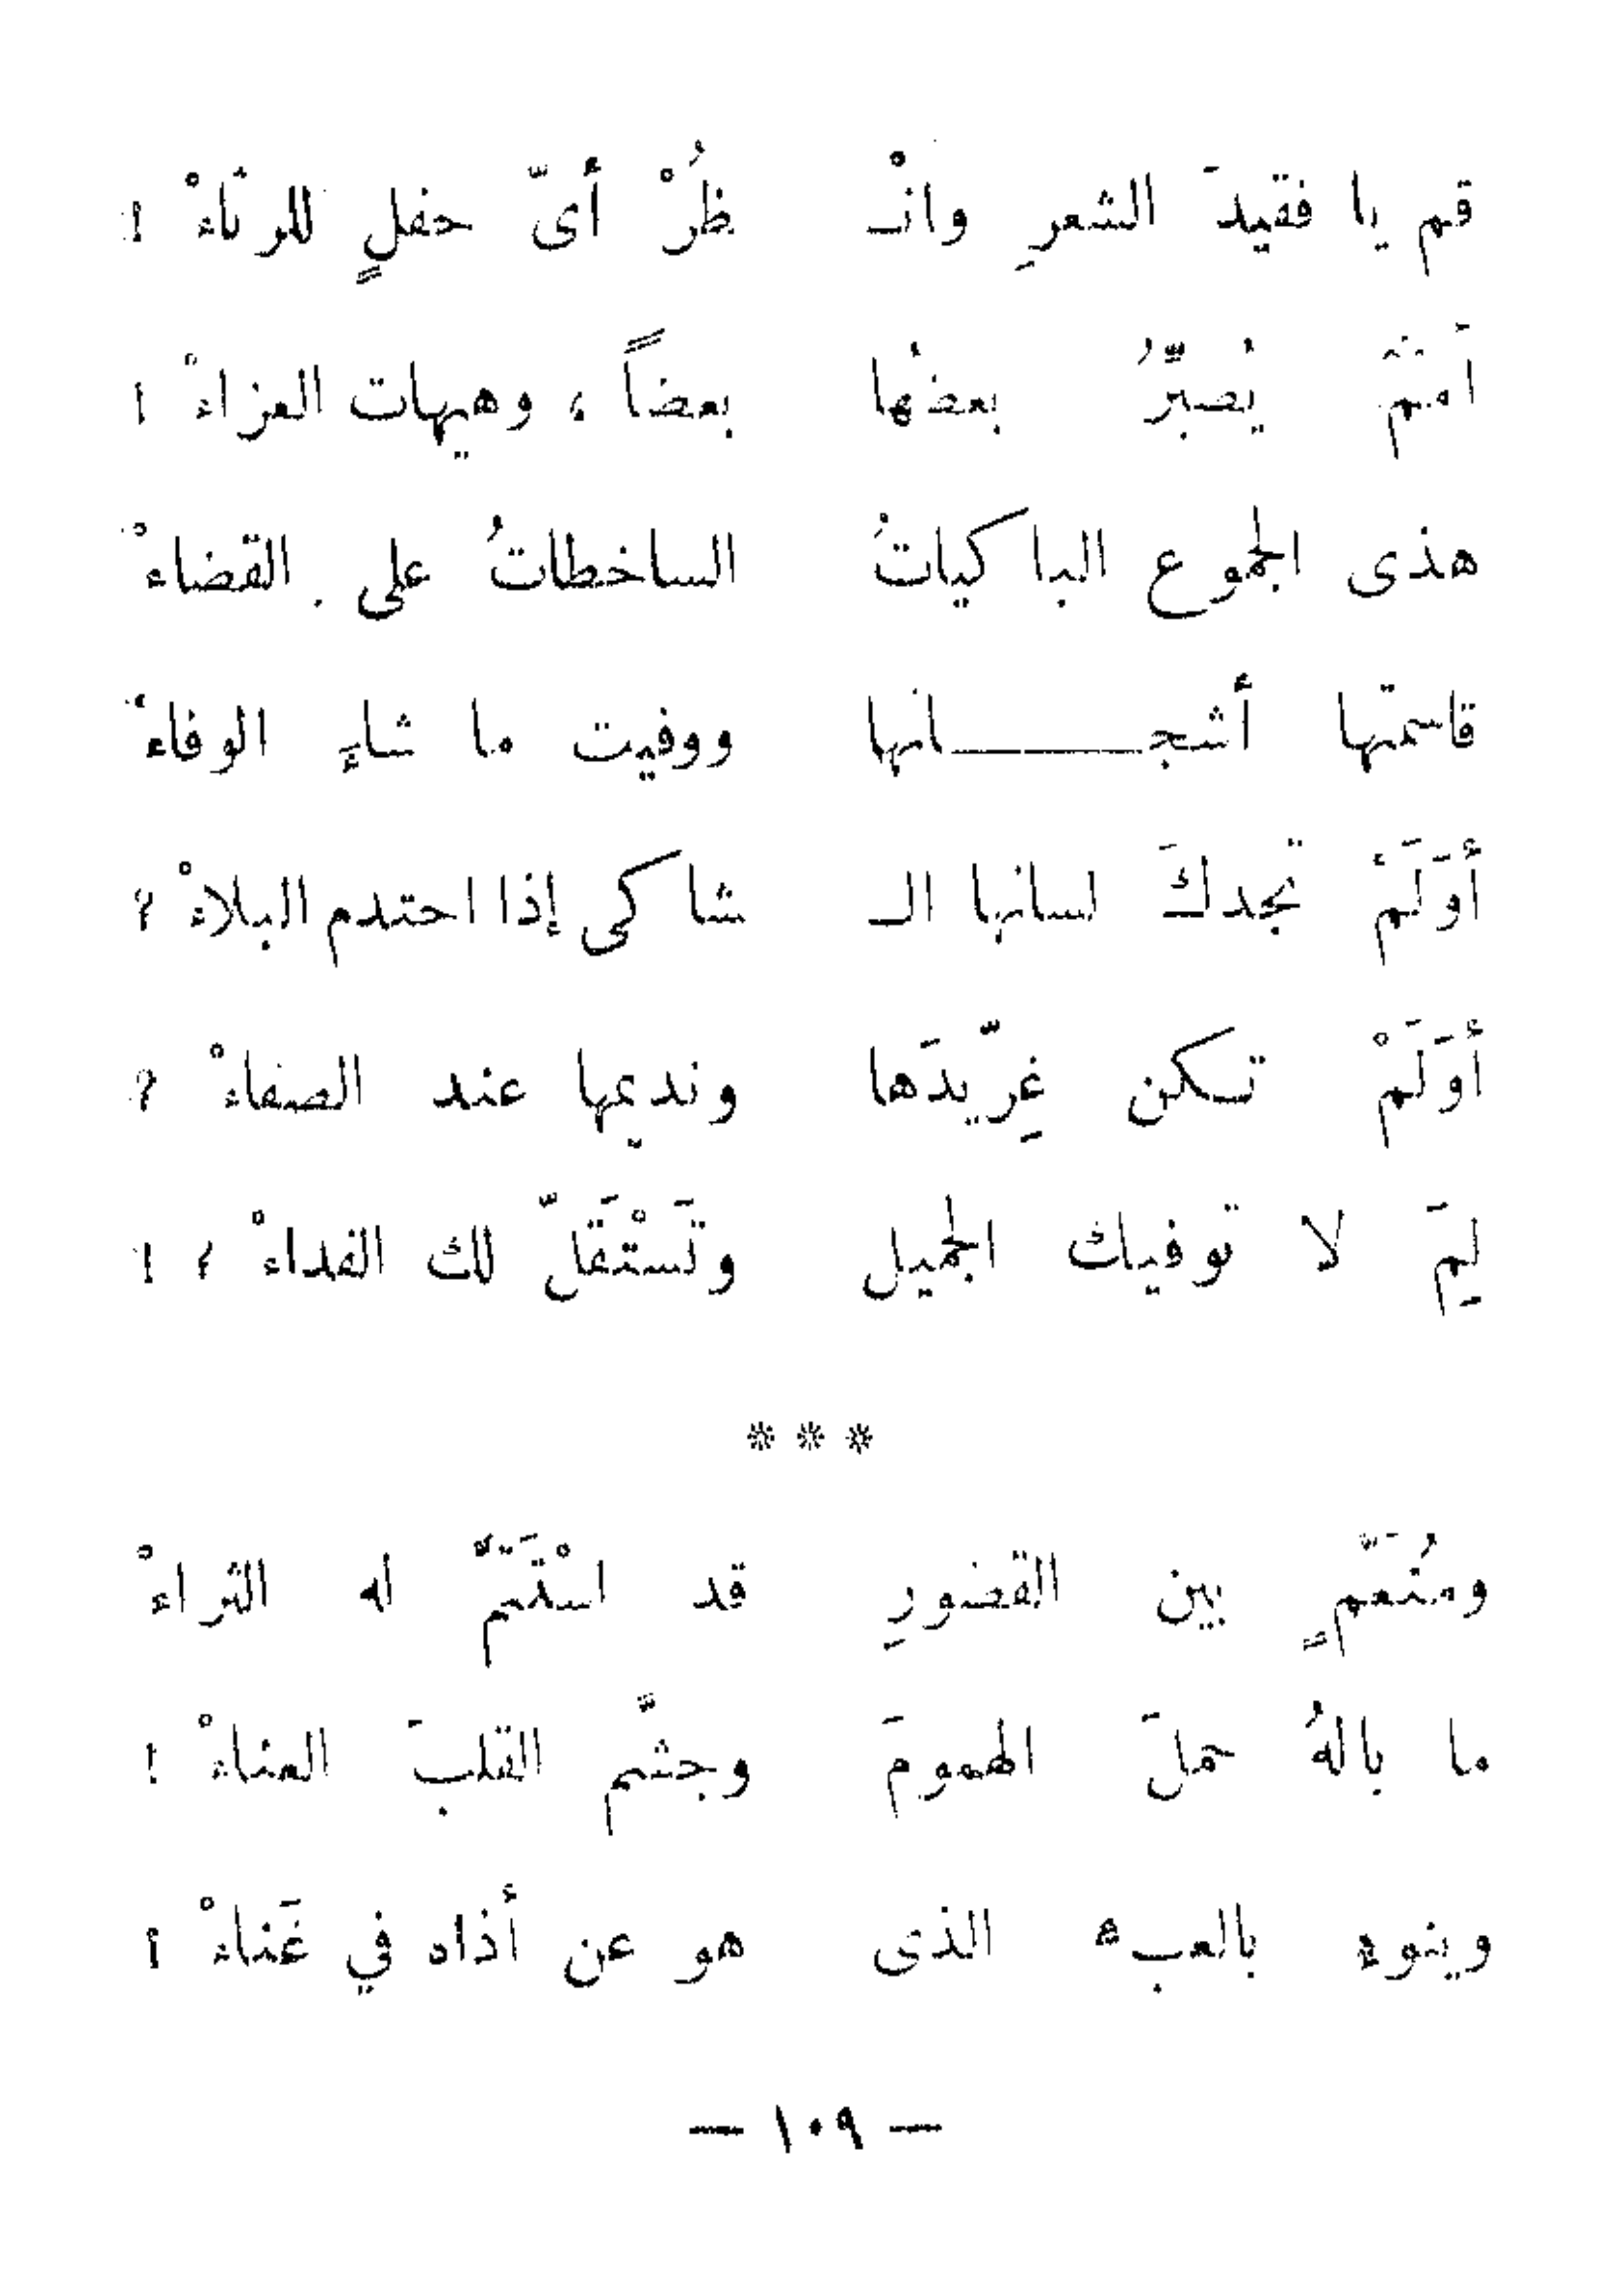 قم يا فقيدَ الشعرِ وانْـ ظُرْ أىّ حفلٍ للرثاءْ !
أممٌ يُصبّرُ بعضُها بعضاً ، وهيهات العزاءْ !
هذى الجموع الباكياتُ الساخطاتُ على القضاءْ
قاسمتَها أشجـــانها ووفيت ما شاءِ الوفاءْ
أوَلَمْ تجدكَ لسانها الـ شاكى إذا احتدم البلاءْ ؟
أوَلَمْ تكن غِرّيدَها ونديمها عند الصفاءْ ؟
لِمَ لا توفيك الجميل وتَسْتَقَلّ لك الفداءْ ؟ !
* * *
ومُنَعَّمٍ بين القصورِ قد اسْتَتَمّ له الثراءْ
ما بالهُ حملَ الهمومَ وجشَّم القلبَ العناءْ !
وينوء بالعبء الذى هو عن أذاه في غَناءْ ؟
— ١٠٩ —